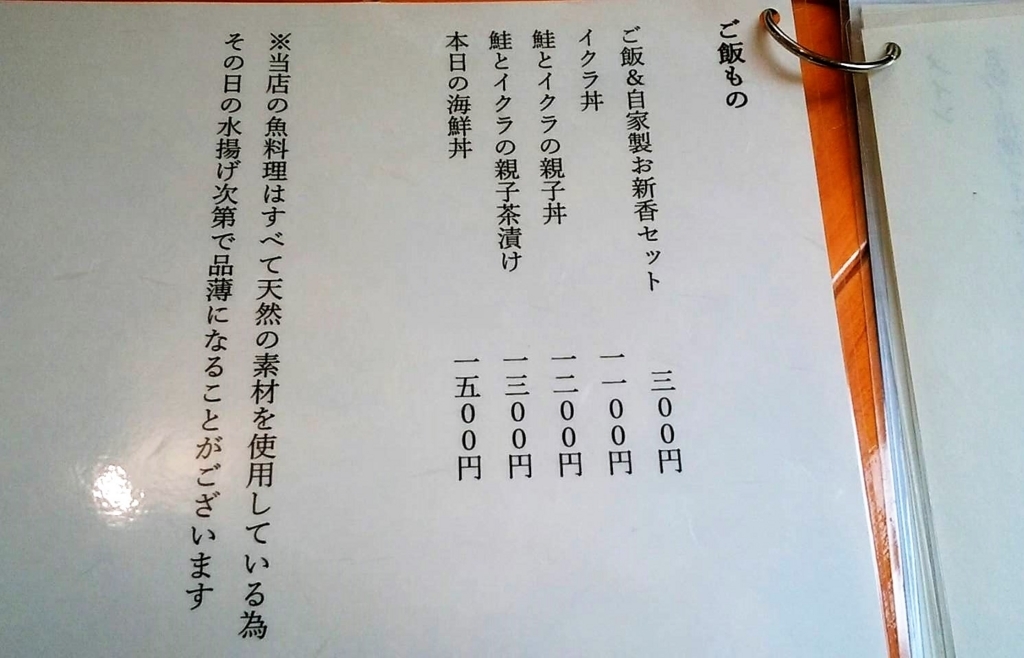 ご飯もの
ご飯&自家製お新香セット 三〇〇円
イクラ丼 一一〇〇円
鮭とイクラの親子丼 一二〇〇円
鮭とイクラの親子茶漬け 一三〇〇円
本日の海鮮丼 一五〇〇円
※当店の魚料理はすべて天然の素材を使用している為
その日の水揚げ次第で品薄になることがございます